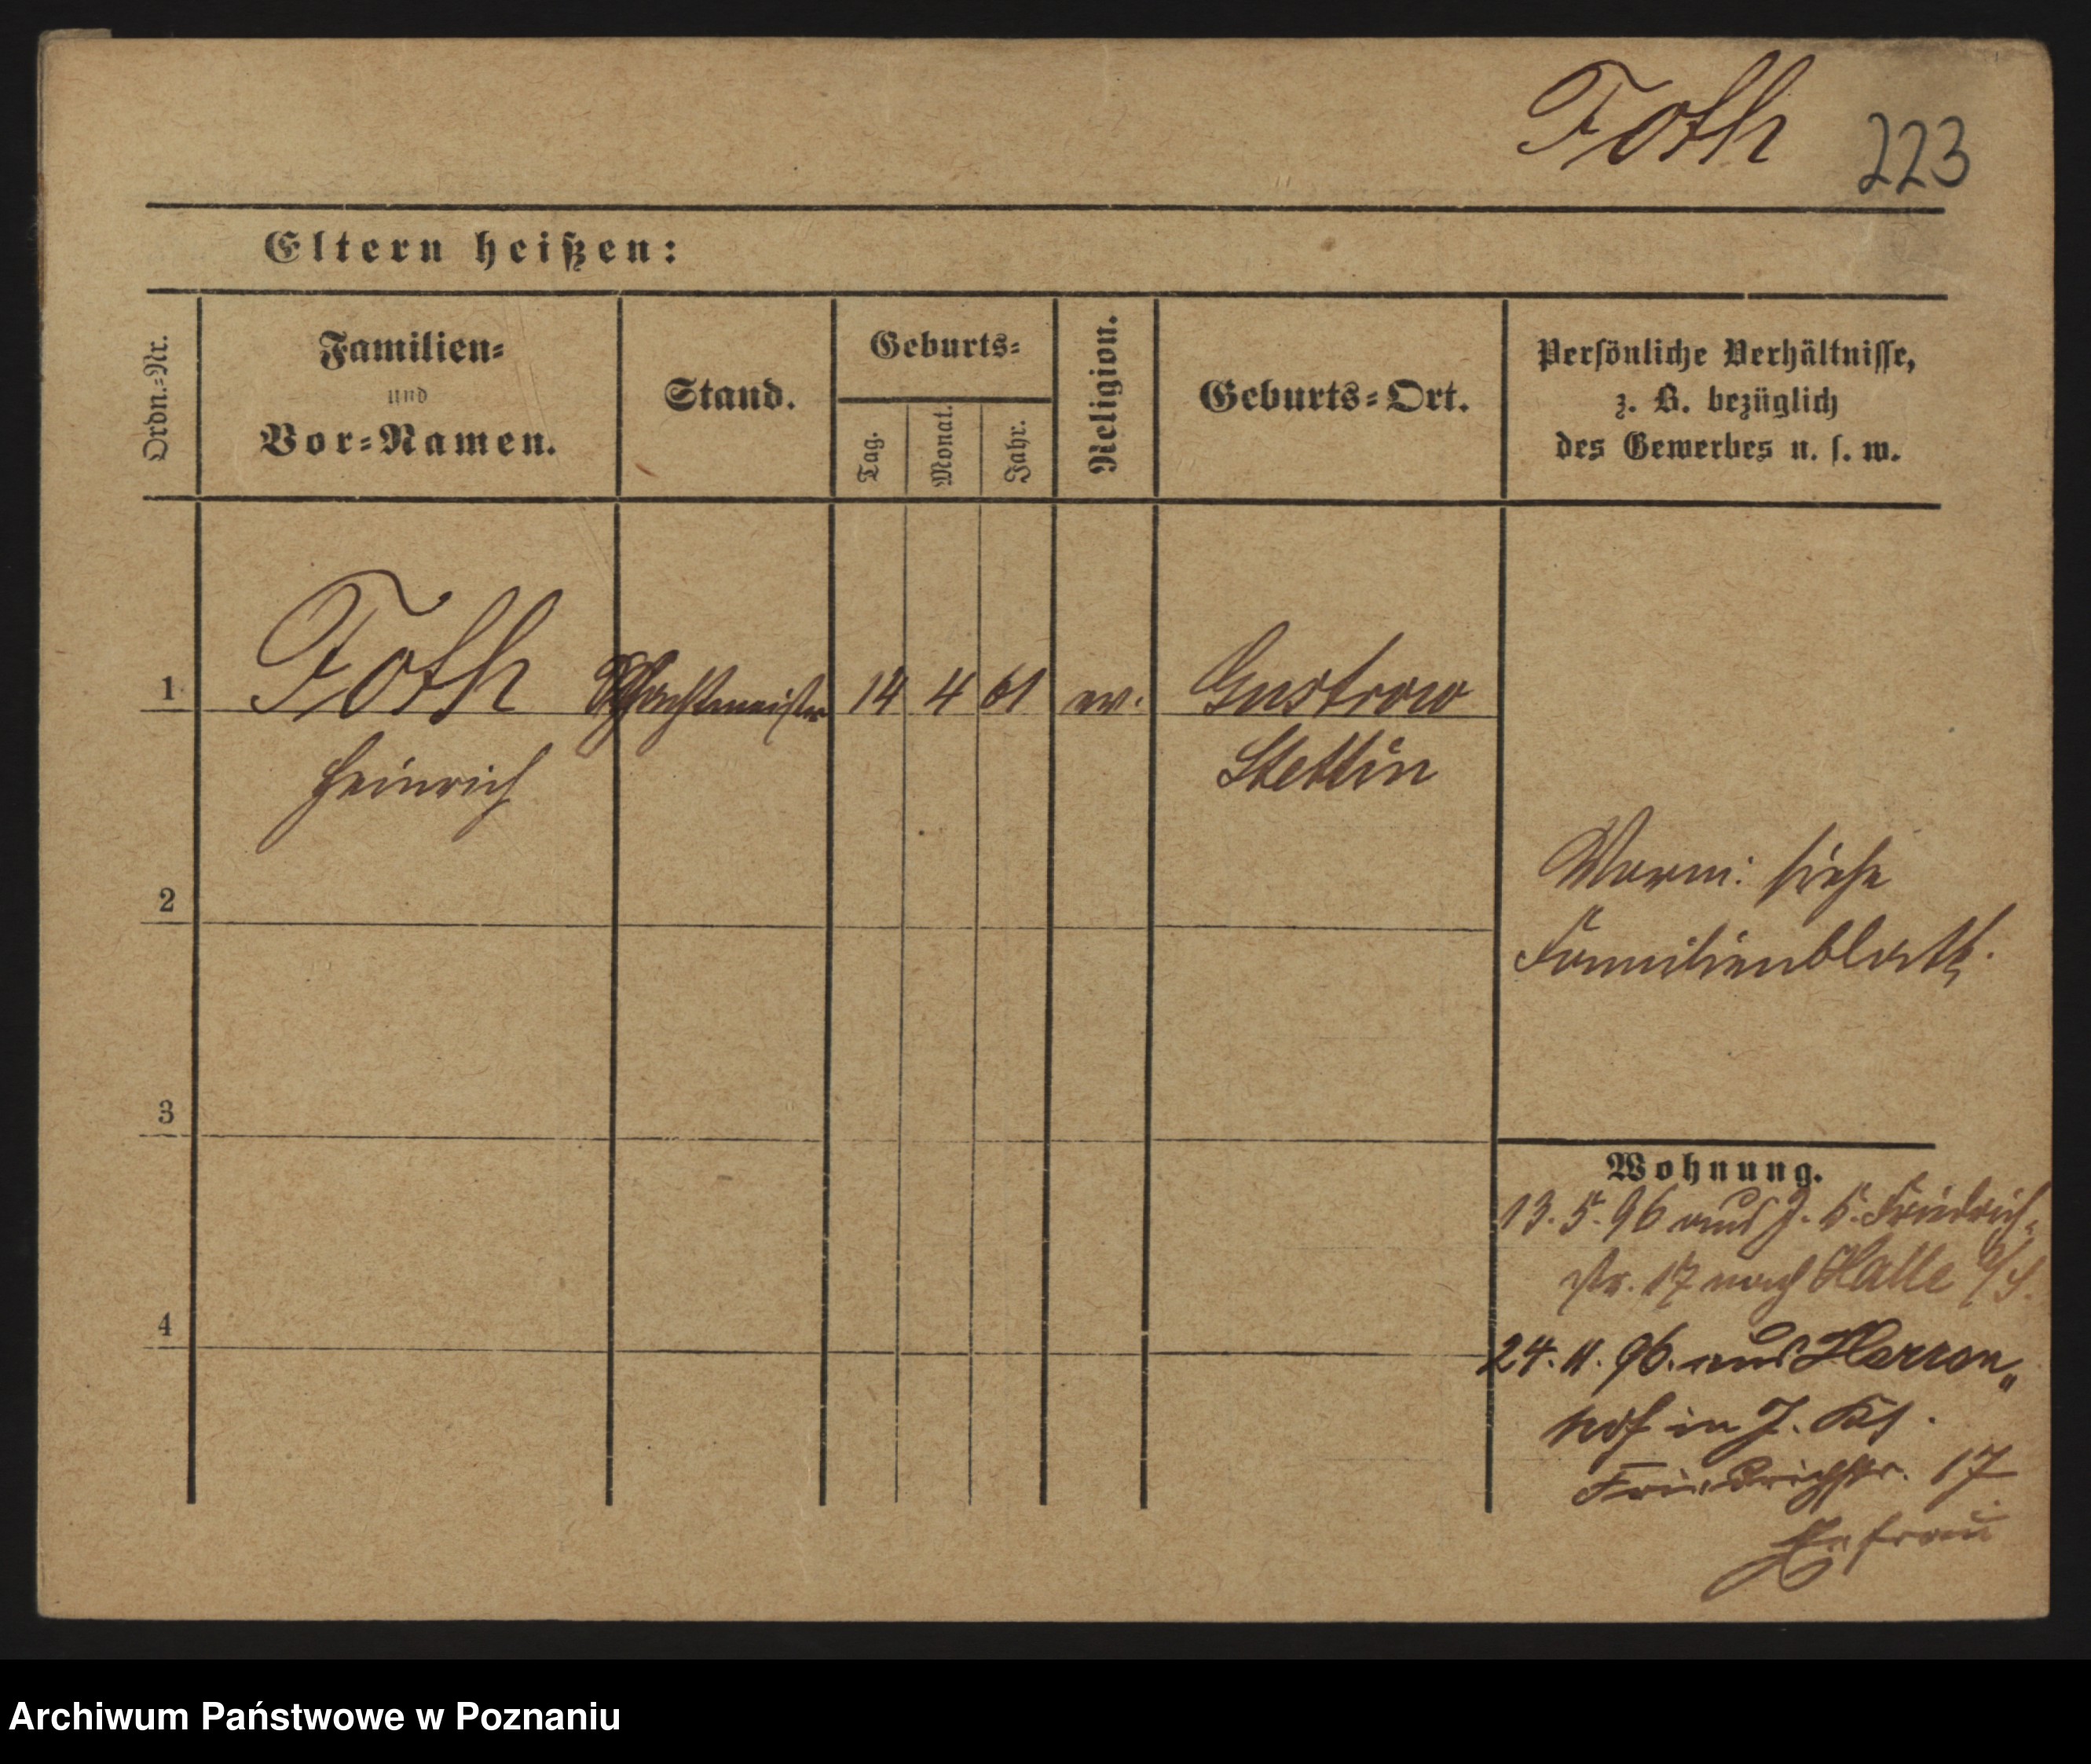 Foth 223
Eltern heißen:
Ordn.-Nr.
Familien-
und
Vor-Namen.
Stand.
Geburts-
Tag.
Monat.
Jahr.
Religion.
Geburts-Ort.
Persönliche Verhältnisse,
z. B. bezüglich
des Gewerbes u. s. w.
1 Foth Schachtmeister 14 4 61 ev. Gustrow
Heinrich Stettin
2
Verm: siehe
Familienblatt.
3
Wohnung.
13. 5. 96 aus J. 5. Friedrich-
str. 17 nach Halle a/S.
4
24. 11. 96. aus
hof in J.
Friedrichstr. 17
Ehefrau
Archiwum Państwowe w Poznaniu